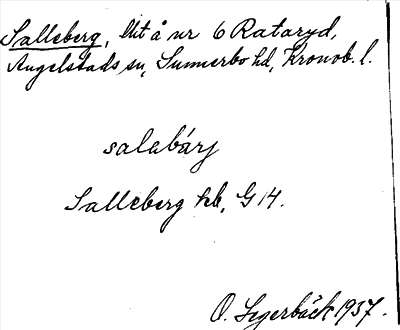 Salleberg, lht å nr 6 Rataryd,
Angelstads sn, Sunnerbo hd, Kronob. l.
salabárj
Salleberg hb, G 14.
O. Segerbäck 1937.